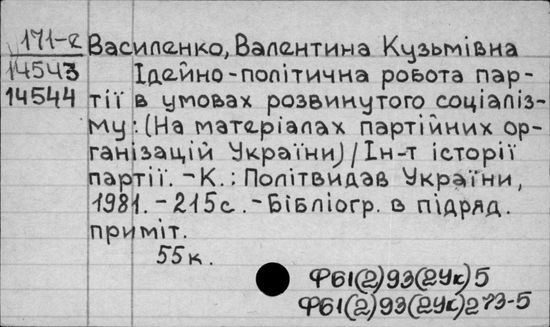 171-2 Василенко, Валентина Кузьмівна
14543 Ідейно-політична робота пар-
14544 тії в умовах розвинутого соціаліз-
му: (На матеріалах партійних ор-
ганізацій України) / Ін-т історії
партії. - К.: Політвидав України,
1981. - 215с. - Бібліогр. в підряд.
приміт.
55к.
Ф61(2)93(2Ук)5
Ф61(2)93(2Ук)273-5